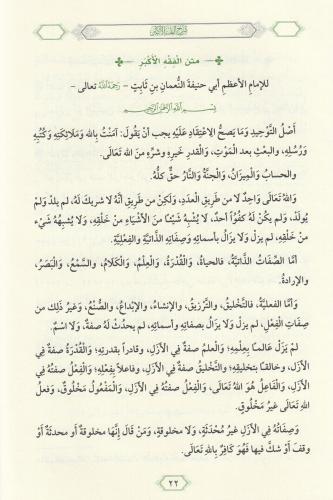 شرح الفقه الأكبر
متن الفِقْهِ الأكْبَرِ
للإمامِ الأعظمِ أبي حنيفةَ النُّعمانِ بنِ ثابِتٍ - رَحِمَهُ اللهُ تعالى -
بِسْمِ اللَّهِ الرَّحْمَنِ الرَّحِيمِ
أَصْلُ التَّوْحِيدِ وَمَا يَصحُّ الاِعْتِقَادِ عَلَيْهِ يجب أنْ يَقُولَ: آمَنْتُ بِالله وَمَلَائِكَتِهِ وَكُتُبِهِ
وَرُسُلِهِ، والبعْثِ بعد الْمَوْتِ، وَالْقَدرِ خيرِهِ وشرِّهِ مِنَ الله تَعَالَى.
والحسابُ وَالْمِيزَانُ، وَالْجنَّةُ وَالنَّارُ حقٌّ كلُّه.
وَاللهُ تَعَالَى وَاحِدٌ لَا من طَرِيقِ الْعدَدِ، وَلَكِنْ من طَرِيقِ أنَّهُ لا شريكَ لَهُ، لم يلدْ وَلمْ
يُولَدْ، وَلم يكُنْ لَهُ كفُوًا أَحدٌ، لَا يُشْبِهُ شَيْئًا منَ الأَشْيَاءِ مِنْ خَلقِهِ، وَلَا يُشْبِهُهُ شَيْءٌ
منْ خَلْقِهِ، لم يَزلْ وَلَا يزَالُ بأسمائِهِ وَصِفَاتِهِ الذَّاتيَّةِ والفِعْلِيَّةِ.
أَمَّا الصِّفَاتُ الذَّاتيَّةُ: فالحياةُ، وَالْقُدْرَةُ، وَالْعِلْمُ، وَالْكَلَامُ، والسَّمْعُ، وَالْبَصَرُ،
والإرادةُ.
وَأمَّا الفعليَّةُ: فالتَّخْلِيقُ، والتَّرْزِيقُ، والإنشاءُ، والإبْدَاعُ، والصُّنْعُ، وَغيرُ ذَلِك من
صِفَاتِ الْفِعْلِ، لم يزلْ وَلَا يزَالُ بصفاتِهِ وأسمائِهِ، لم يحدُثْ لَهُ صفةٌ، وَلَا اسْمٌ.
لم يَزَلْ عَالـمًا بِعِلْمِهِ؛ والعلمُ صفةٌ فِي الأَزَلِ، وقادراً بقدرتِهِ؛ وَالْقُدْرَةُ صفةٌ فِي
الأَزَلِ، وخالقًا بتخليقِهِ؛ والتَّخليقُ صفةٌ فِي الأَزَلِ، وفاعلاً بِفِعْلِهِ؛ وَالْفِعْلُ صفتُهُ فِي
الأَزَلِ، وَالْفَاعِلُ هُوَ اللهُ تَعَالَى، وَالْفِعْلُ صفتُهُ فِي الأَزَلِ، وَالْمَفْعُولُ مَخْلُوقٌ، وَفعلُ
اللهِ تَعَالَى غيرُ مَخْلُوقٍ.
وَصِفَاتُهُ فِي الأَزَلِ غيرُ مُحْدَثَةٍ، وَلَا مخلوقةٍ، وَمَنْ قَالَ إِنَّهَا مخلوقةٌ أَو محدثةٌ أَوْ
وقفَ أَوْ شكَّ فيها فَهُوَ كَافِرٌ بِاللهِ تَعَالَى.
٢٢